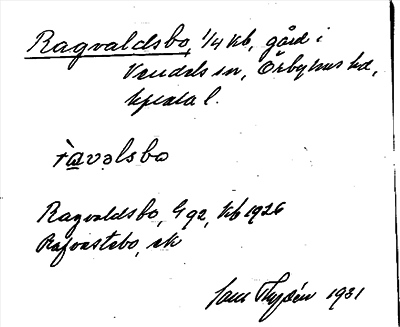 Ragvaldsbo, 1/4 kb, gård i
Vendels sn, Örbyhus hd,
Upsala l.
ràvalsbo
Ragvaldsbo, G 92, kb 1926
Rafvastebo, sk
1931